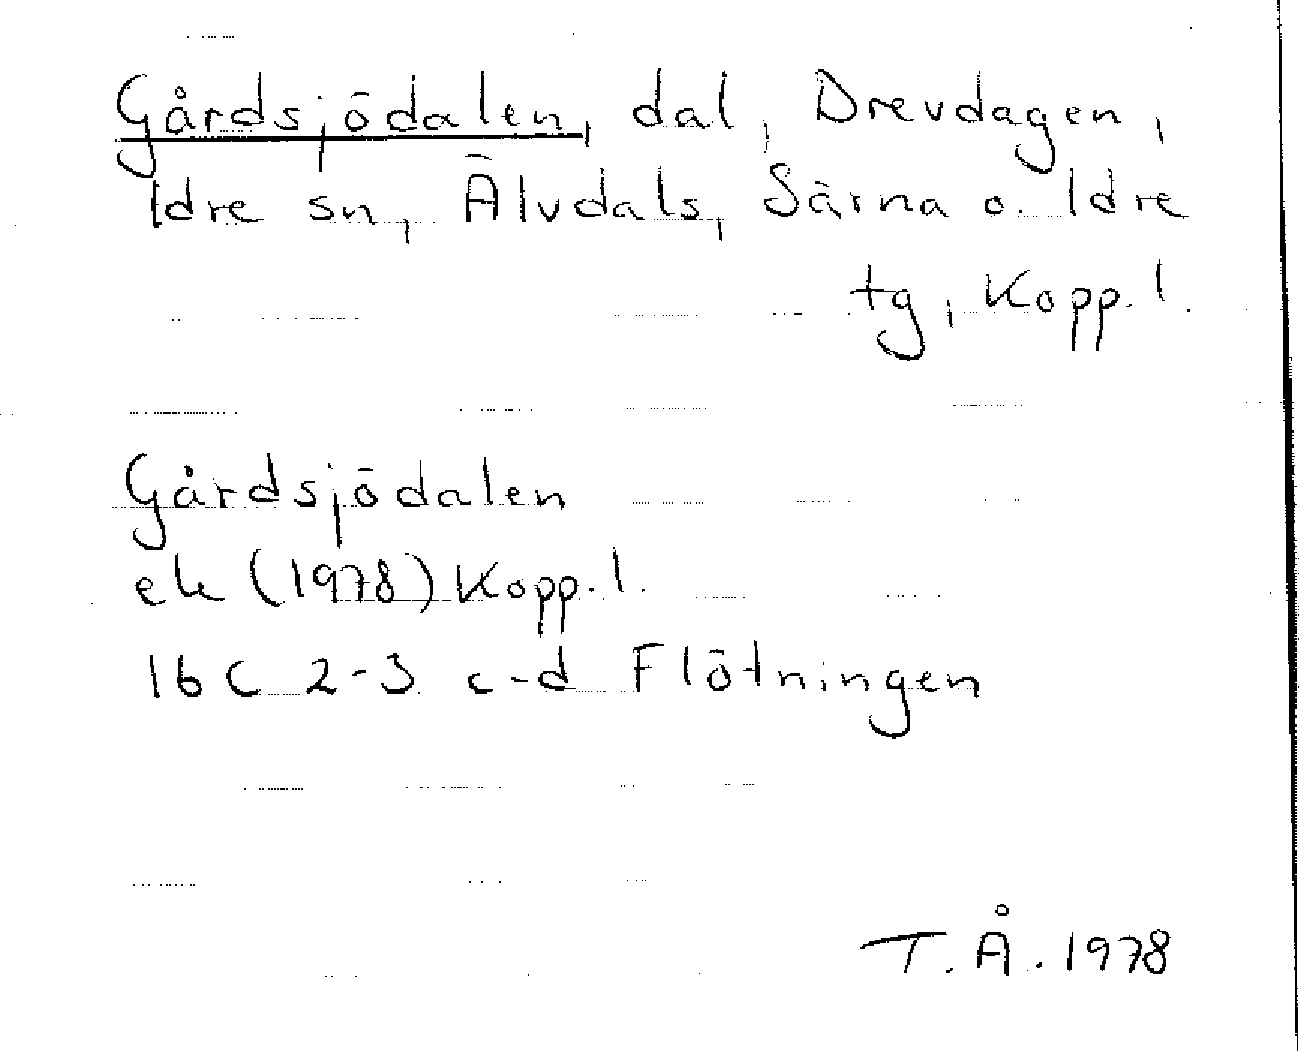 Gårdsjödalen, dal, Drevdagen,
Idre sn, Älvdals, Särna o. Idre
tg, Kopp. l.
Gårdsjödalen
ek (1978) Kopp. l.
16 C 2-3 c-d Flötningen
T. Å. 1978